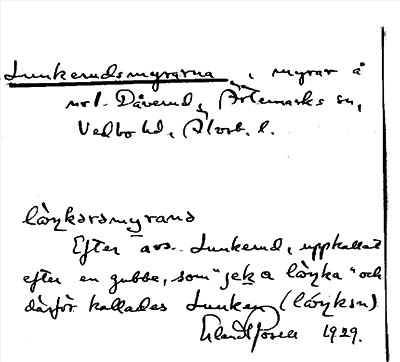 Lunkerudsmyrarna, myrar å
nol. Dåverud, Ärtemarks sn,
Vedbo hd, Älvsb. l.
låŋkərəmyrana
Efter avs. Lunkerud, uppkallat
efter en gubbe, som "jek a låŋka" och
därför kallades Lunken (låŋkən)
Erland Rosell 1929.